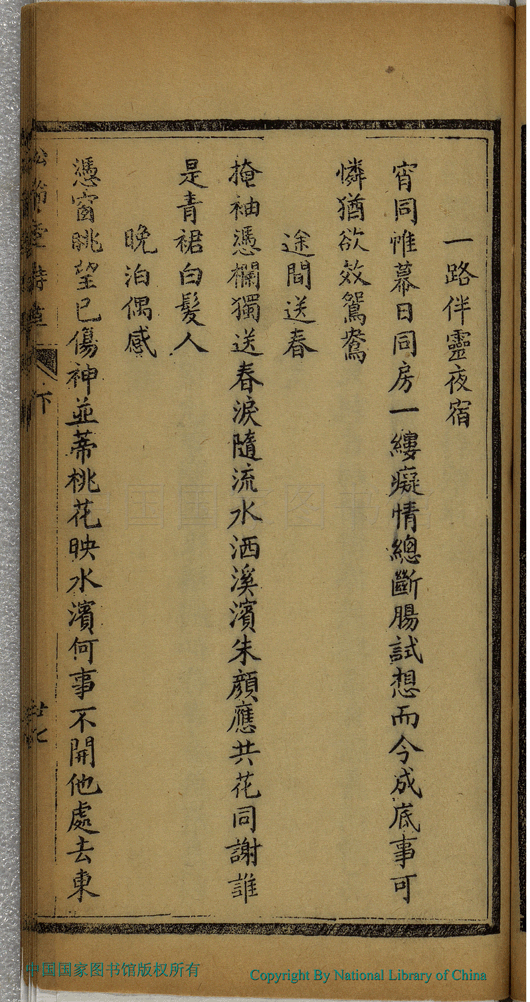 一路伴靈夜宿
宵同帷幕日同房一縷癡情總斷腸試想而今成底事可
憐猶欲效鴛鴦
途間送春
掩袖憑欄獨送春淚隨流水洒溪濱朱顏應共花同謝誰
是青裙白髮人
晚泊偶感
憑窗眺望已傷神並蒂桃花映水濱何事不開他處去東
堂詩草
下
中国国家图书馆版权所有
Copyright By National Library of China